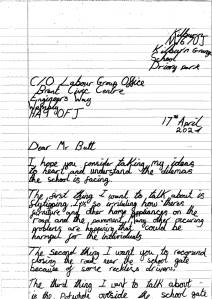 Kilburn
NW6 7DJ
Kilburn Grange
School
Priory Park
C/O Labour Group Office
Brent Civic Centre
Engineers Way
Wembley
HA9 0FJ
17th April
2024
Dear Mr Butt
I hope you consider taking my ideas
to heart and understand the dilemas
the school is facing.
The first thing I want to talk about is
flytipping. It's so irritating how there's
furniture and other home appliances on the
road and the pavement. Many other occuring
problems are happening that could be
harmful for the individuals.
The second thing I want you to recomend
closing the road near the school gate
because of some reckless drivers.
The third thing I want to talk about
is the Potholes outside the school gate